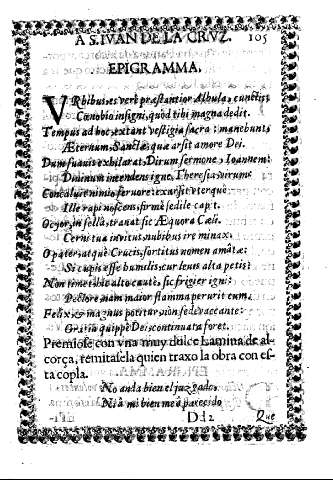 A S. IVAN DE LA CRVZ. 105
EPIGRAMMA.
VRbibus, es verè præstantior Albula, cunctis,
Cœnobio insigni, quod tibi magna dedit.
Tempus ad hoc, extant vestigia sacra: manebunt,
Æternum, Sanctæ, quæ arsit amore Dei.
Dum suauis exhilarat, Dirum sermone, Ioannem:
Diuinum intendens igne, Theresia, virum
Concaluit nimio feruore: exarsit vterque
Ille rapi noscens, firmè sedile capit.
Ocyor, in sella, tranat sic Æquora Cæli.
Cerni tua inuitus, nubibus ire minax.
O pater, atque Crucis, sortitus nomen amatæ:
Si cupis esse humilis, cur leuis alta petis?
Non timet hic alto cautè, sic frigier igni:
Pectore, nam maior flamma perurit eum.
Felix, & magnus potitur, non sede vacante:
Gratia quippè Dei, continuata foret.
Premiose con vna muy dulce Lamina de al-
corça, remitasela quien traxo la obra con es-
ta copla.
No anda bien el juzgado,
Ni à mi bien me à parecido
Dd2 Que